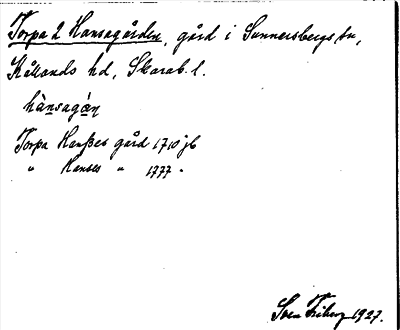 Torpa 2 Hansagården, gård i Sunnersbergs sn,
Kållands hd, Skarab. l.
hànsagá̱ṉ
Torpa Hanßes gård 1710 jb
" Hanses " 1777 "
Sven Friberg 1927.